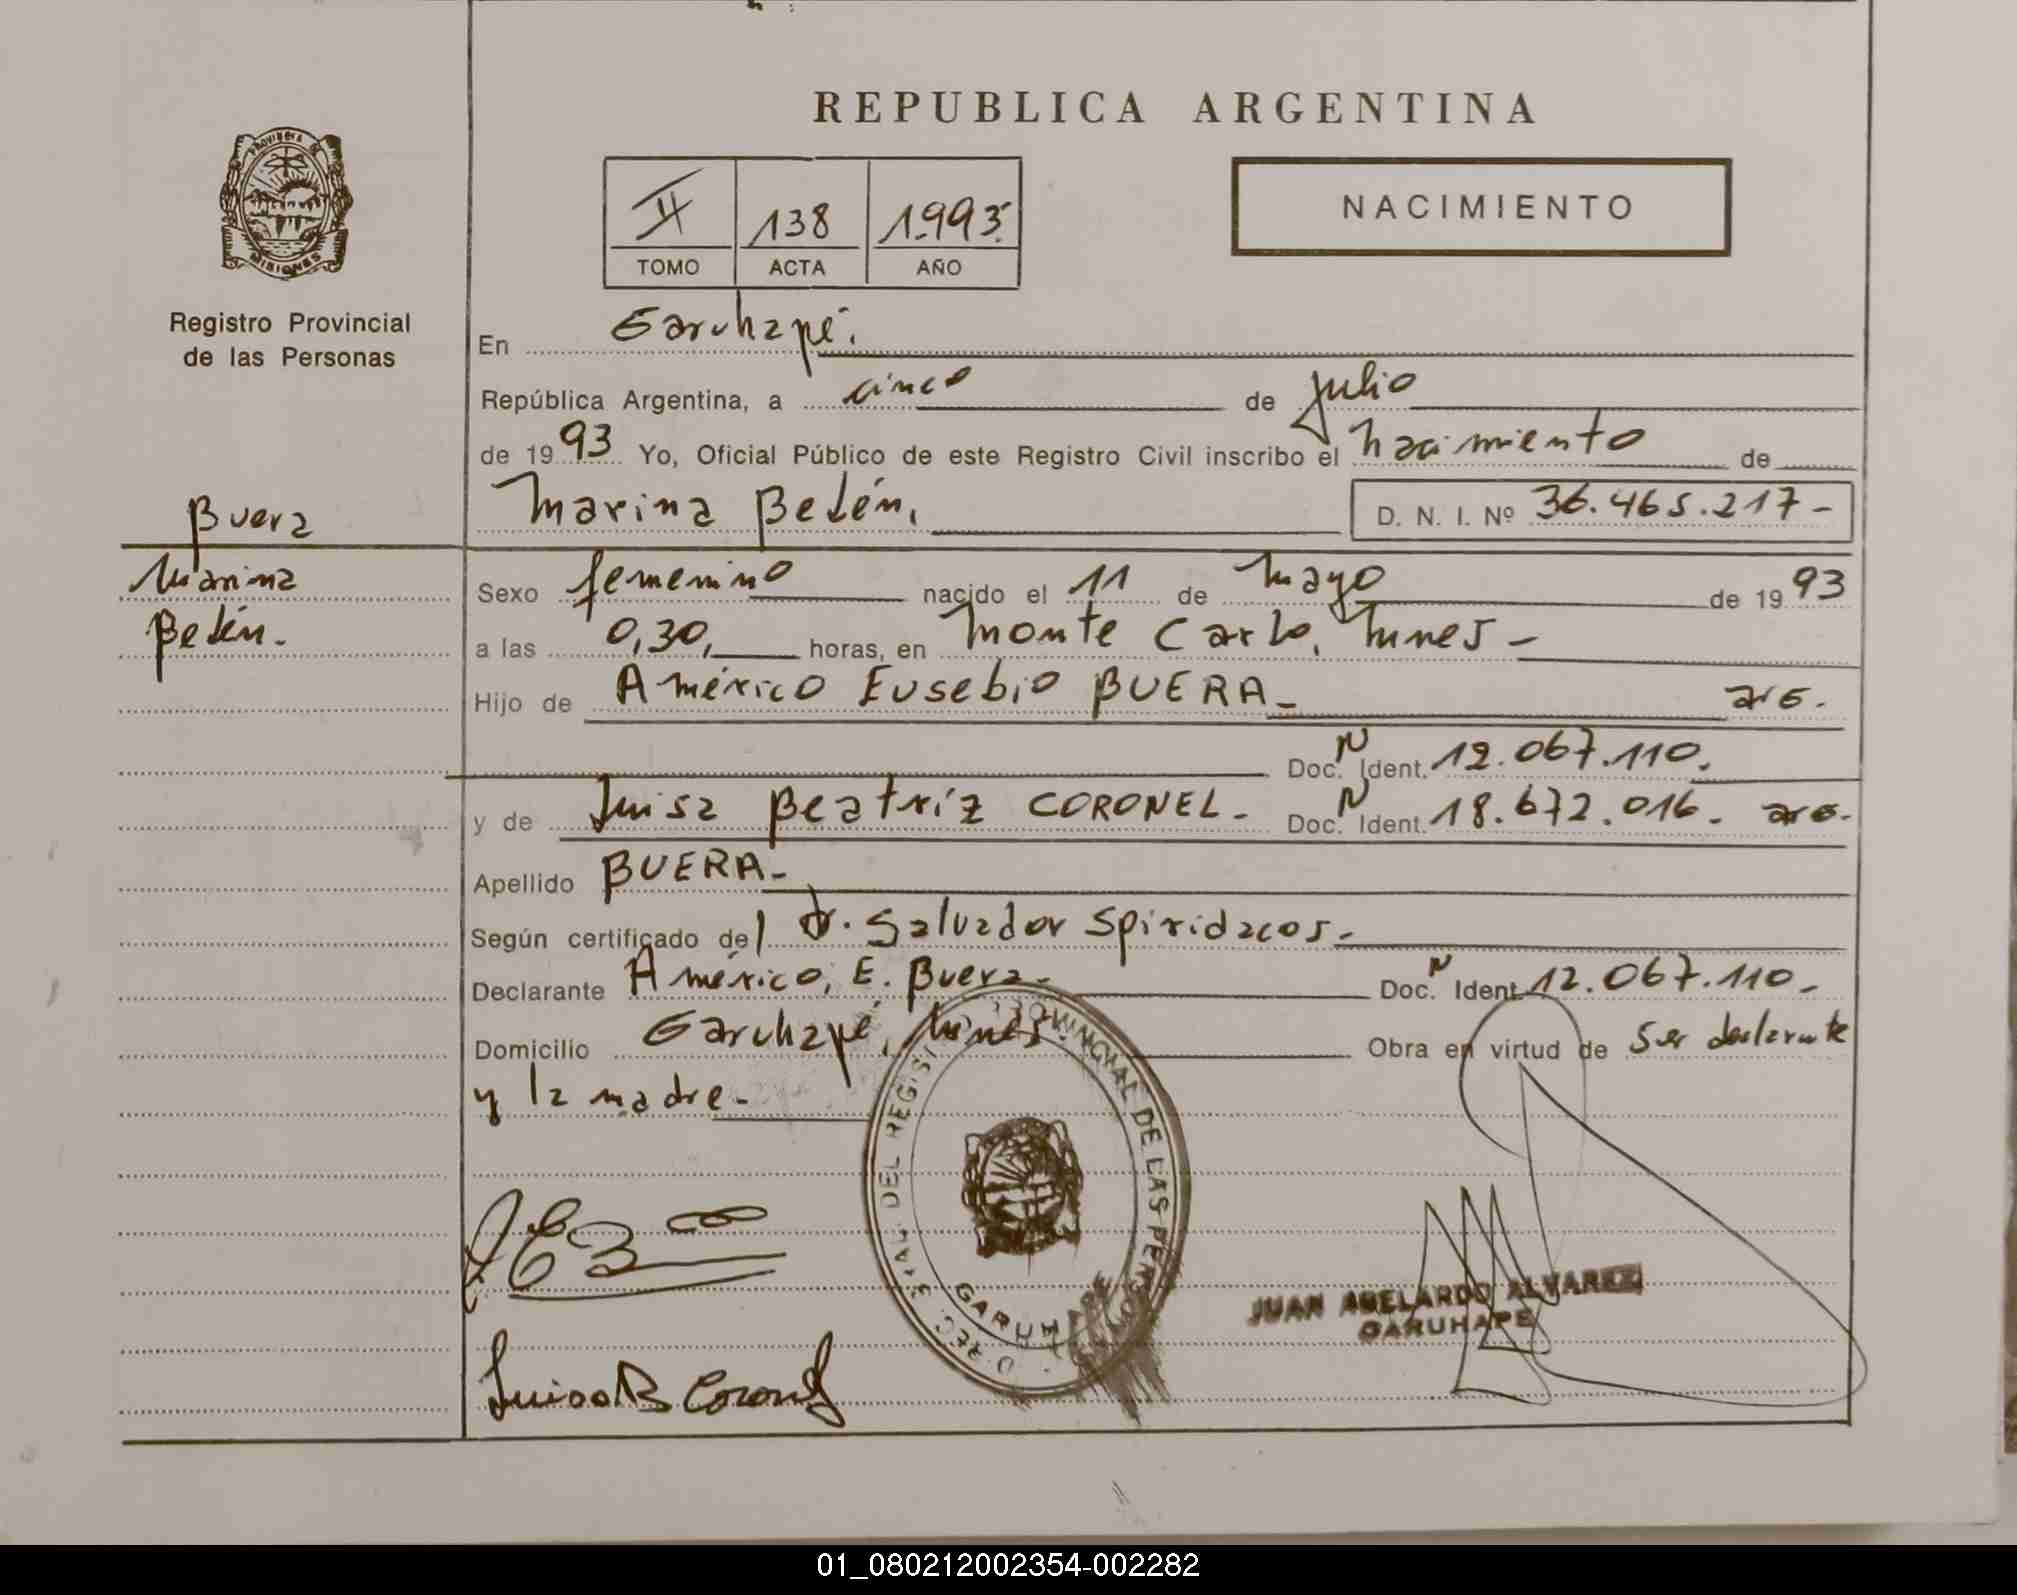 REPUBLICA ARGENTINA
PROVINCIA DE
MISIONES
Registro Provincial
de las Personas
II 138 1.993
TOMO ACTA AÑO
NACIMIENTO
En Garuhapé.
República Argentina, a cinco de julio
de 1993 Yo, Oficial Público de este Registro Civil inscribo el nacimiento de
Marina Belén, D. N. I. Nº 36.465.217-
Buera
Marina
Belén.
Sexo femenino nacido el 11 de Mayo de 1993
a las 0,30, horas, en Monte Carlo,
Hijo de Américo Eusebio BUERA- arg.
Doc. N Ident. 12.067.110.
y de Luisa Beatríz CORONEL- Doc. N Ident. 18.672.016. arg.
Apellido BUERA-
Según certificado del Dr. Salvador Spiridacos-
Declarante Américo, E. Buera- Doc. N Ident. 12.067.110-
Domicilio Garuhapé, Obra en virtud de Ser declarante
y la madre-
Luisa B Coronel
JUAN ABELARDO ALVAREZ
GARUHAPE
01_080212002354-002282